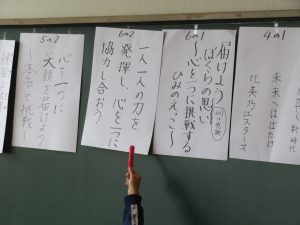 4の1
未来へはばたけ
比美乃江スターズ
新時代
6の1
届けよう
ぼくらの思い
〜心を一つに挑戦する
ひみのえっこ〜
6の2
一人一人の力を
発揮し、心を一つに
協力し合おう
5の2
心を一つに
笑顔を届けよう
〜本気で挑戦〜